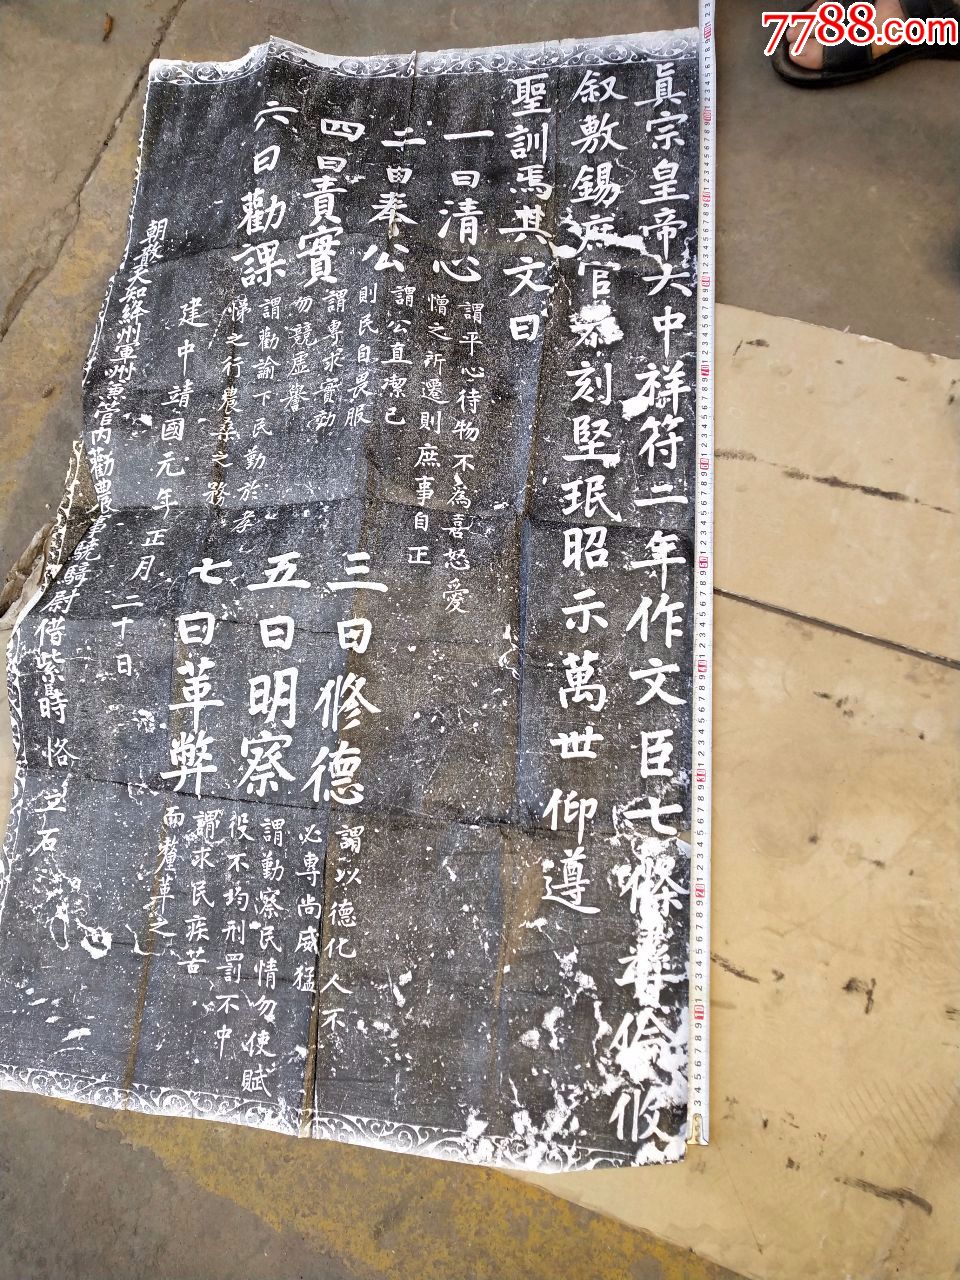 7788.com
眞宗皇帝大中祥符二年作文臣七條彝倫攸
叙敷錫庶官恭刻堅珉昭示萬世仰遵
聖訓焉其文曰
一曰清心
謂平心待物不為喜怒愛
憎之所遷則庶事自正
二曰奉公
謂公直潔己
則民自畏服
三曰修德
謂以德化人不
必專尚威猛
四曰責實
謂專求實効
勿競虛譽
五曰明察
謂勤察民情勿使賦
役不均刑罰不中
六曰勸課
謂勸諭下民勤於孝
悌之行農桑之務
七曰革弊
謂求民疾苦
而釐革之
建中靖國元年正月二十日
朝散大夫知絳州軍州兼管內勸農事驍騎尉借紫時恪立石